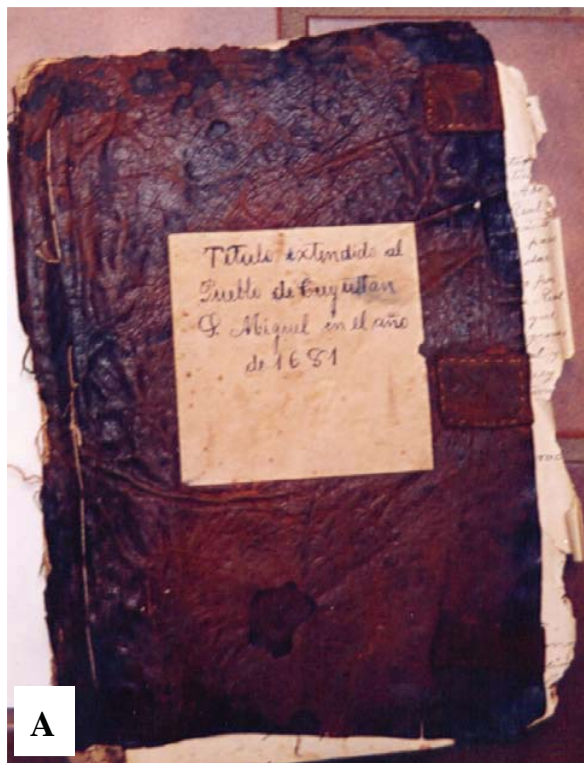 Titulo extendido al
Pueblo de Cuyultan
S. Miguel en el año
de 1681
A